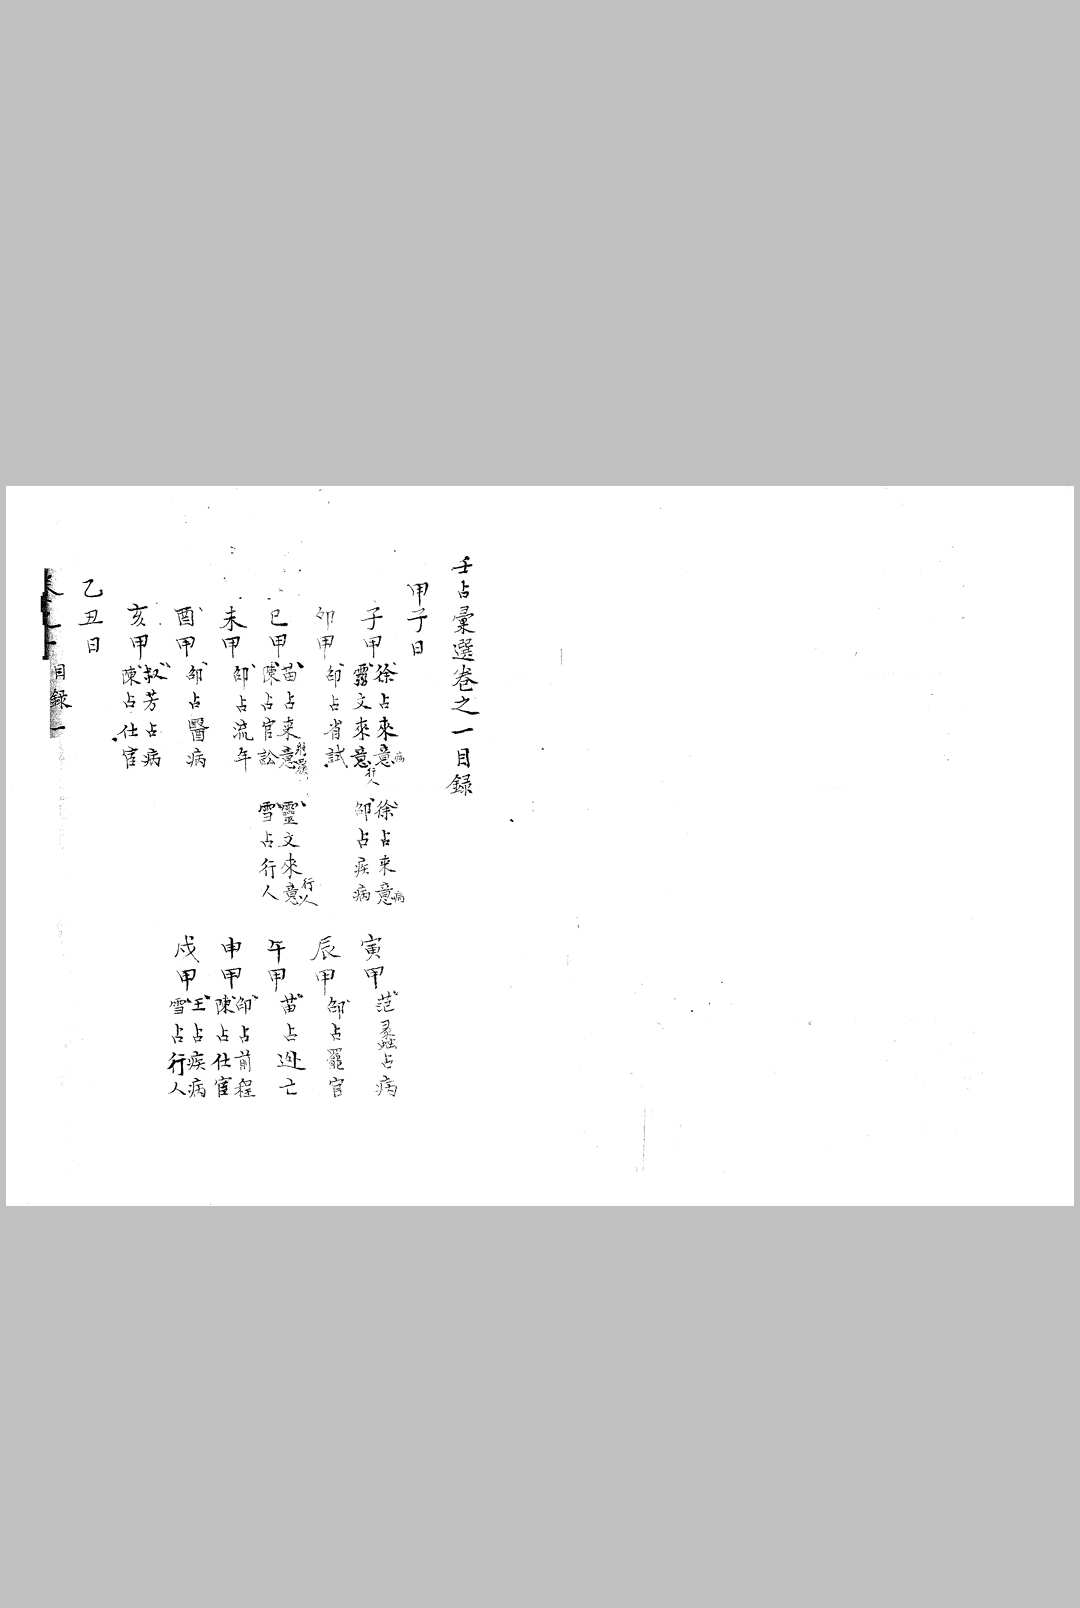 壬占彙選卷之一目録
甲子日
子甲 徐占來意病 徐占來意病
靈文來意行人 邵占疾病
寅甲 范蠡占病
卯甲 邵占省試
辰甲 邵占罷官
巳甲 苗占來意 靈文來意行人
陳占官訟 雪占行人
午甲 苗占逃亡
未甲 邵占流年
申甲 邵占前程
陳占仕宦
酉甲 邵占醫病
戌甲 王占疾病
雪占行人
亥甲 叔芳占病
陳占仕宦
乙丑日
卷之一 目録 一